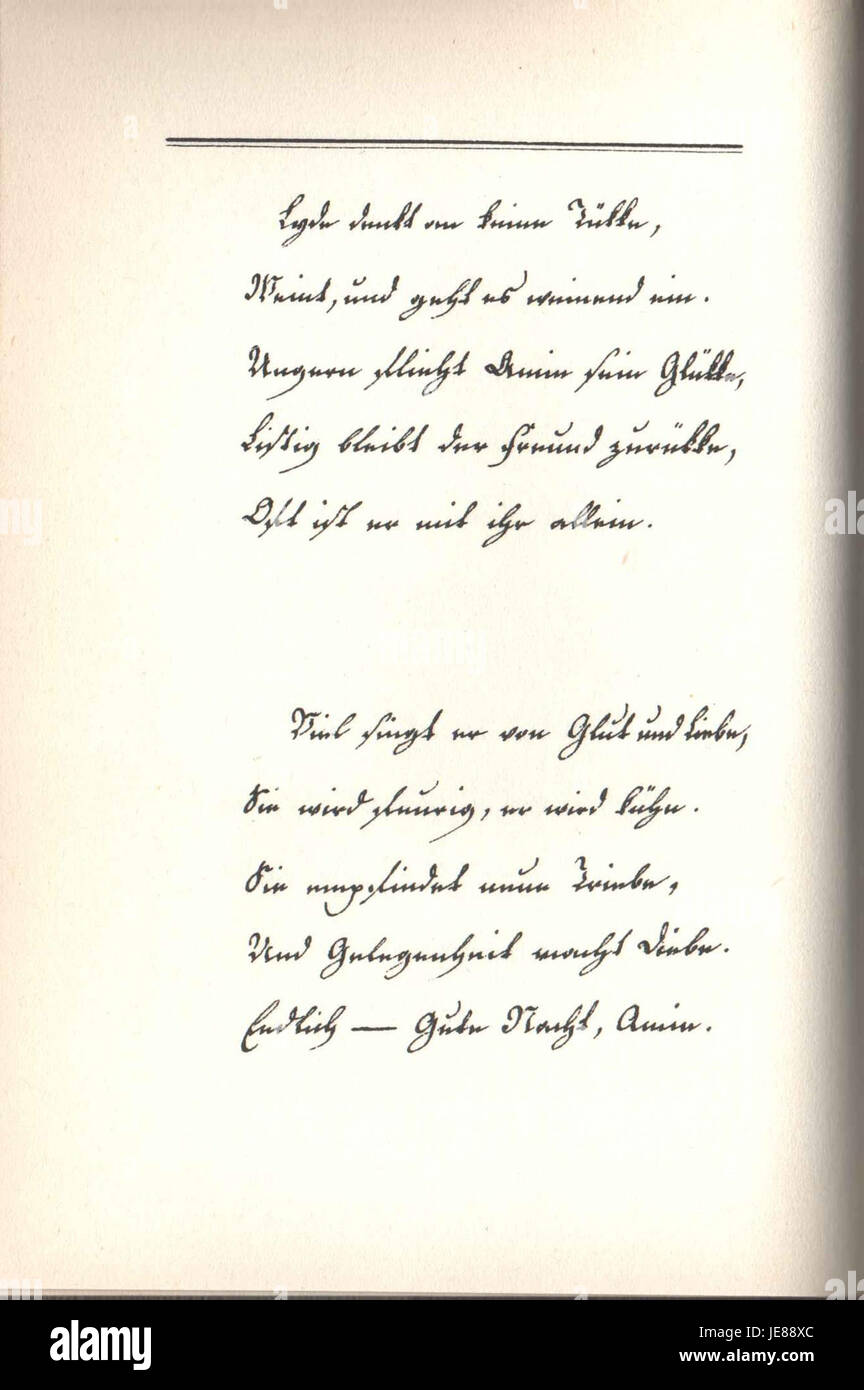 Lyde denkt an keine Tükke,
Weint, und geht es weinend ein.
Ungern flieht Amin sein Glükke,
Listig bleibt der Freund zurükke,
Oft ist er mit ihr allein.
Viel singt er von Glut und Liebe,
Sie wird feurig, er wird kühn.
Sie empfindet neue Triebe,
Und Gelegenheit macht Diebe.
Endlich — Gute Nacht, Amin.
alamy
alamy stock photo
JE88XC
www.alamy.com